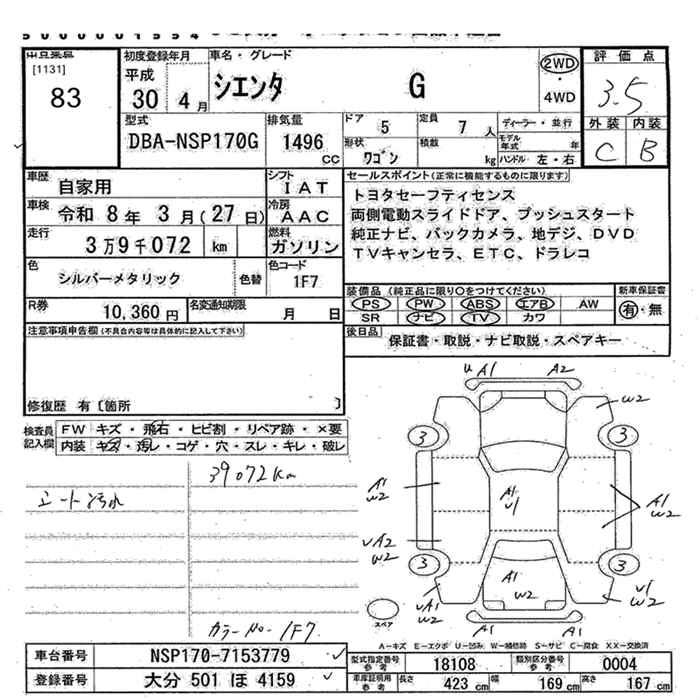 出品番号
[1131]
83
初度登録年月
平成
30 4月
車名・グレード
シエンタ G
2WD
・
4WD
評価点
3.5
外装 内装
C B
型式
DBA-NSP170G
排気量
1496
cc
ドア 5
定員 7人
形状 ワゴン
積載 kg
ディーラー・並行
モデル年式 年
ハンドル 左・右
車歴 自家用
シフト IAT
車検 令和 8年 3月(27日)
冷房 AAC
走行 3万9千072 km
燃料 ガソリン
色 シルバーメタリック 色替
色コード 1F7
R券 10,360円
名変通知期限 月 日
セールスポイント(正常に機能するものに限ります)
トヨタセーフティセンス
両側電動スライドドア、プッシュスタート
純正ナビ、バックカメラ、地デジ、DVD
TVキャンセラ、ETC、ドラレコ
装備品(純正品に限り○をつけてください)
PS PW ABS エアB AW
SR ナビ TV カワ
新車保証書
有・無
後日品 保証書・取説・ナビ取説・スペアキー
注意事項申告欄(不具合内容等は具体的に記入して下さい)
修復歴 有〔箇所 〕
検査員記入欄
FW キズ・飛石・ヒビ割・リペア跡・×要
内装 キズ・汚レ・コゲ・穴・スレ・キレ・破レ
39072km
シート汚れ
カラーNo. 1F7
U A1 A2
W2
3 3
A1
W2
A1
U1
A1
W2
UA2
W2
3 3
A1
W2
UA1
W2
U1
W2
スペア
A1 A1
A-キズ E-エクボ U-凹み W-補修跡 S-サビ C-腐食 XX-交換済
車台番号 NSP170-7153779
登録番号 大分 501 ほ 4159
型式指定番号参考 18108
類別区分番号参考 0004
車庫証明用参考 長さ 423cm 幅 169cm 高さ 167cm